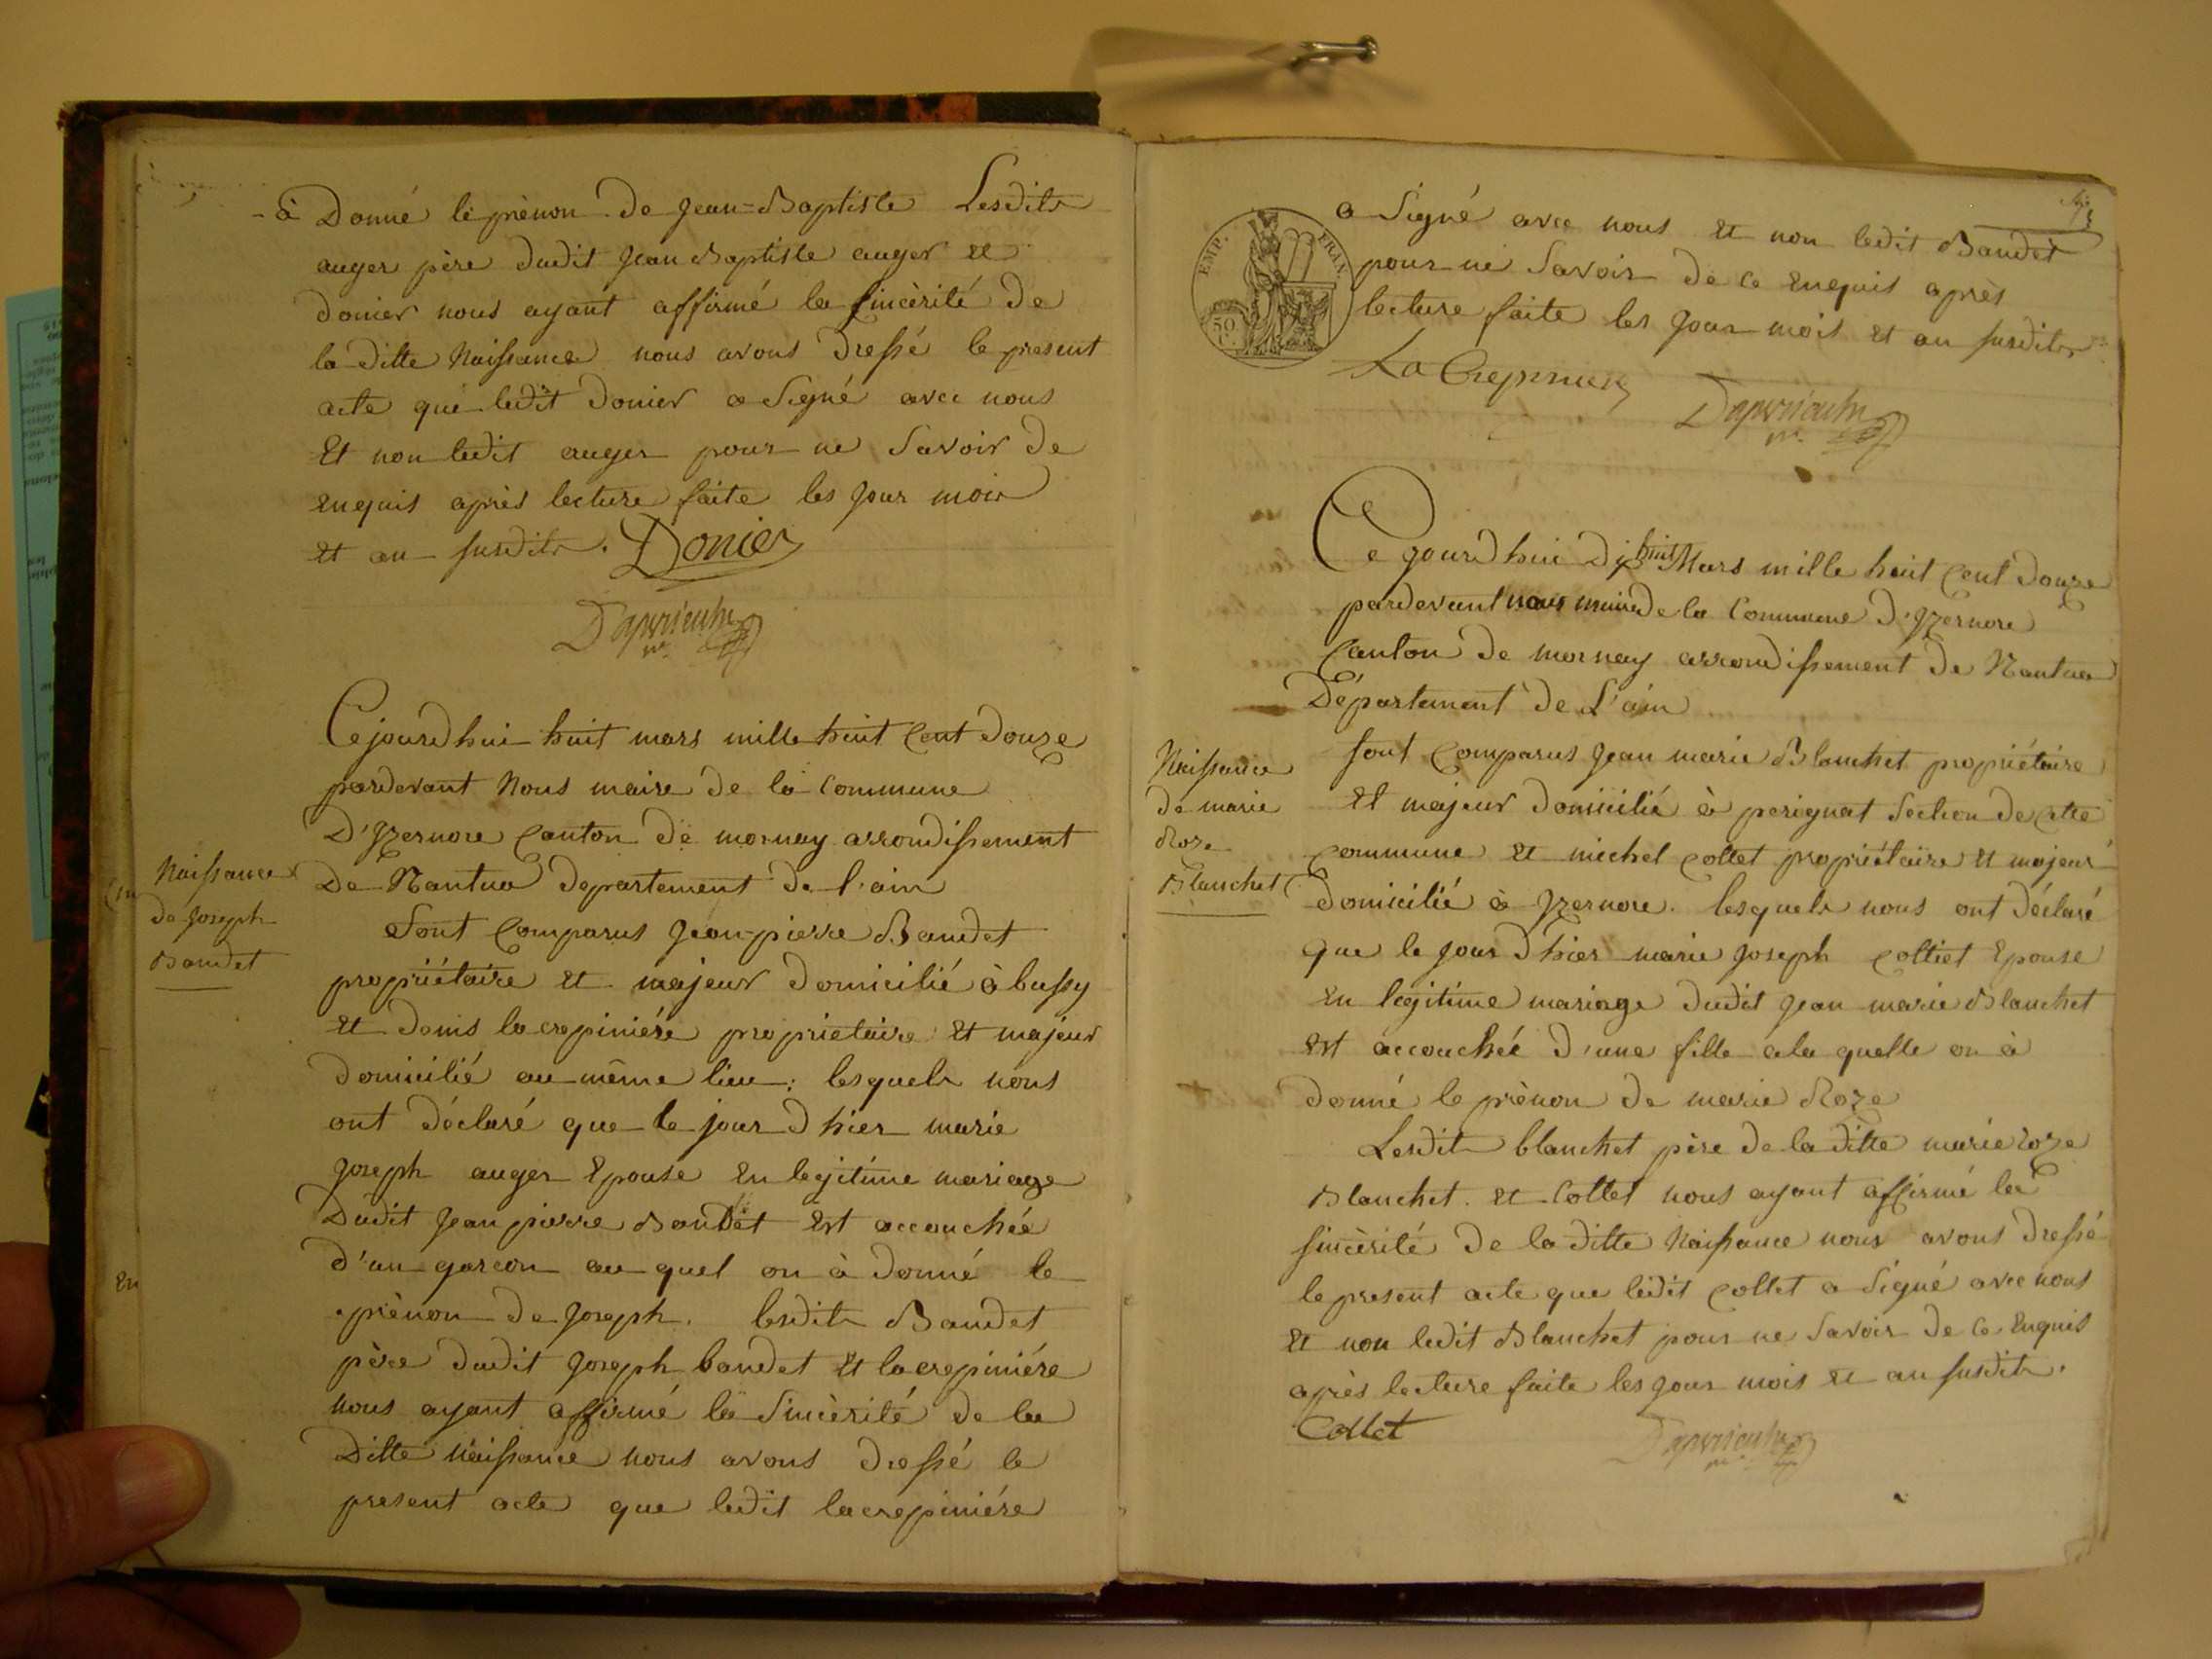 à Donné le prènon de Jean=Baptiste Lesdits
auger père dudit Jean Baptiste auger et
donier nous ayant affirmé la sincèrité de
la ditte Naissance nous avons dressé le present
acte que ledit donier a Signé avec nous
Et non ledit auger pour ne Savoir de
enquis après lecture faite les Jour mois
et an susdits. Donier
Cejourdhui huit mars mille huit Cent douze
pardevant Nous maire de la Commune
D'Yzernore Canton de mornay arrondissement
De Nantua departement de l'ain
Naissance
de Joseph
Baudet
Sont Comparus Jean-pierre Baudet
propriétaire et majeur domicilié à bussy
et denis lacrepiniére proprietaire et majeur
domicilié au même lieu: lesquels nous
ont déclaré que le jour d hier marie
Joseph auger Epouse en legitime mariage
Dudit Jean pierre Baudet est accouchée
d'un garcon au quel on à donné le
prènon de Joseph. lesdits Baudet
père dudit Joseph baudet et lacrepiniére
nous ayant affirmé la Sincèrité de la
Ditte naissance nous avons dressé le
present acte que ledit lacrepiniére
EMP. FRAN.
50 C.
a Signé avec nous et non ledit Baudet
pour ne Savoir de ce enquis après
lecture faite les Jour mois et an susdits
Ce Jourdhui dix huit Mars mille huit Cent douze
pardevant nous maire de la Commune d'Yzernore
Canton de mornay arrondissement de Nantua
Département de L'ain
Naissance
de marie
Roze
Blanchet
sont Comparus Jean marie Blanchet propriétaire
et majeur domicilié à perignat Section de cette
Commune et michel Collet propriétaire et majeur
domicilié à Yzernore. lesquels nous ont déclaré
que le Jour d hier marie Joseph Collet Epouse
en legitime mariage dudit Jean marie Blanchet
est accouchée d'une fille a la quelle on à
donné le prènon de marie Roze
Lesdits blanchet père de la ditte marie roze
Blanchet. et Collet nous ayant affirmé la
sincèrité de la ditte Naissance nous avons dressé
le present acte que ledit Collet a Signé avec nous
et non ledit Blanchet pour ne Savoir de ce Enquis
après lecture faite les Jour mois et an susdits.
Collet